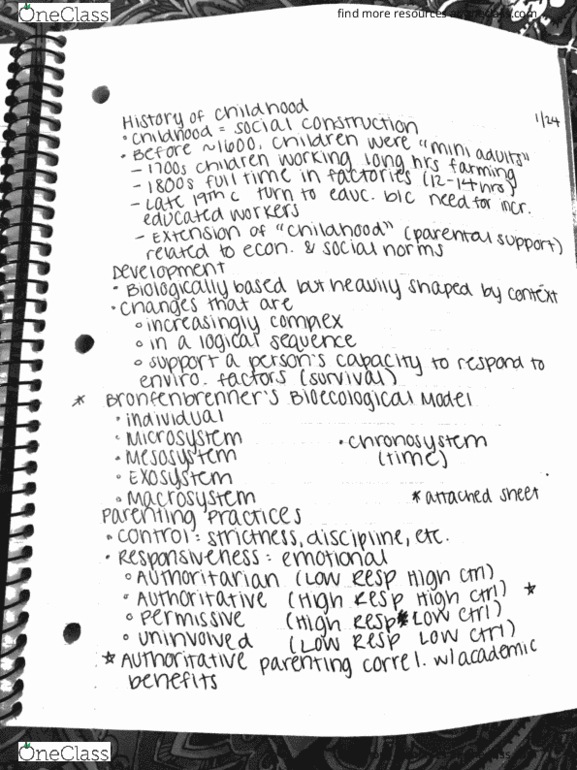 OneClass
find more resources at oneclass.com
1/24
History of childhood
• childhood = social construction
• Before ~1600, children were "mini adults"
– 1700s children working long hrs farming
– 1800s full time in factories (12-14 hrs)
– Late 19th c turn to educ. b/c need for incr.
educated workers
– Extension of "childhood" (parental support)
related to econ. & social norms
Development
• Biologically based but heavily shaped by context
• changes that are
◦ increasingly compex
◦ in a logical sequence
◦ support a person's capacity to respond to
enviro. factors (survival)
* Bronfenbrenner's Bioecological Model
• individual
• Microsystem
• Mesosystem
• Exosystem
• Macrosystem
• chronosystem
(time)
* attached sheet
Parenting Practices
• control: strictness, discipline, etc.
• Responsiveness: emotional
◦ Authoritarian (Low Resp High Ctrl)
◦ Authoritative (High Resp High Ctrl) ☆
◦ permissive (High Resp Low Ctrl)
◦ uninvolved (Low Resp Low Ctrl)
☆ Authoritative parenting correl. w/ academic
benefits
OneClass